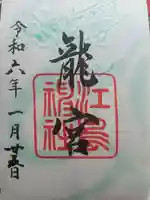 龍宮
江島神社
令和六年一月廿五日